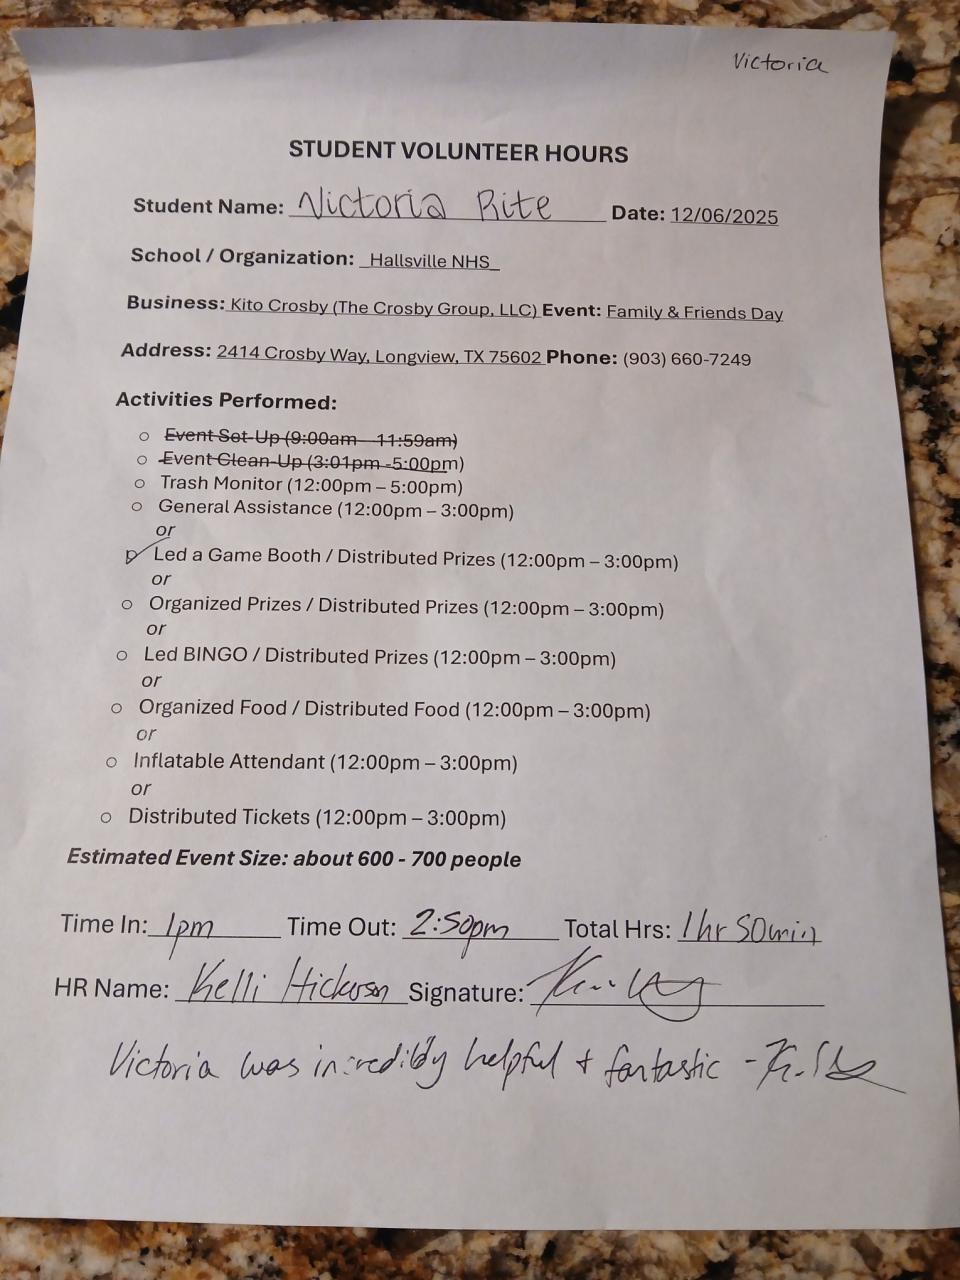 Victoria
STUDENT VOLUNTEER HOURS
Student Name: Victoria Rite Date: 12/06/2025
School / Organization: Hallsville NHS
Business: Kito Crosby (The Crosby Group, LLC) Event: Family & Friends Day
Address: 2414 Crosby Way, Longview, TX 75602 Phone: (903) 660-7249
Activities Performed:
○ Event Set-Up (9:00am – 11:59am)
○ Event Clean-Up (3:01pm -5:00pm)
○ Trash Monitor (12:00pm – 5:00pm)
○ General Assistance (12:00pm – 3:00pm)
or
Led a Game Booth / Distributed Prizes (12:00pm – 3:00pm)
or
○ Organized Prizes / Distributed Prizes (12:00pm – 3:00pm)
or
○ Led BINGO / Distributed Prizes (12:00pm – 3:00pm)
or
○ Organized Food / Distributed Food (12:00pm – 3:00pm)
or
○ Inflatable Attendant (12:00pm – 3:00pm)
or
○ Distributed Tickets (12:00pm – 3:00pm)
Estimated Event Size: about 600 - 700 people
Time In: 1pm Time Out: 2:50pm Total Hrs: 1hr 50min
HR Name: Kelli Hickerson Signature:
Victoria was incredibly helpful + fantastic -